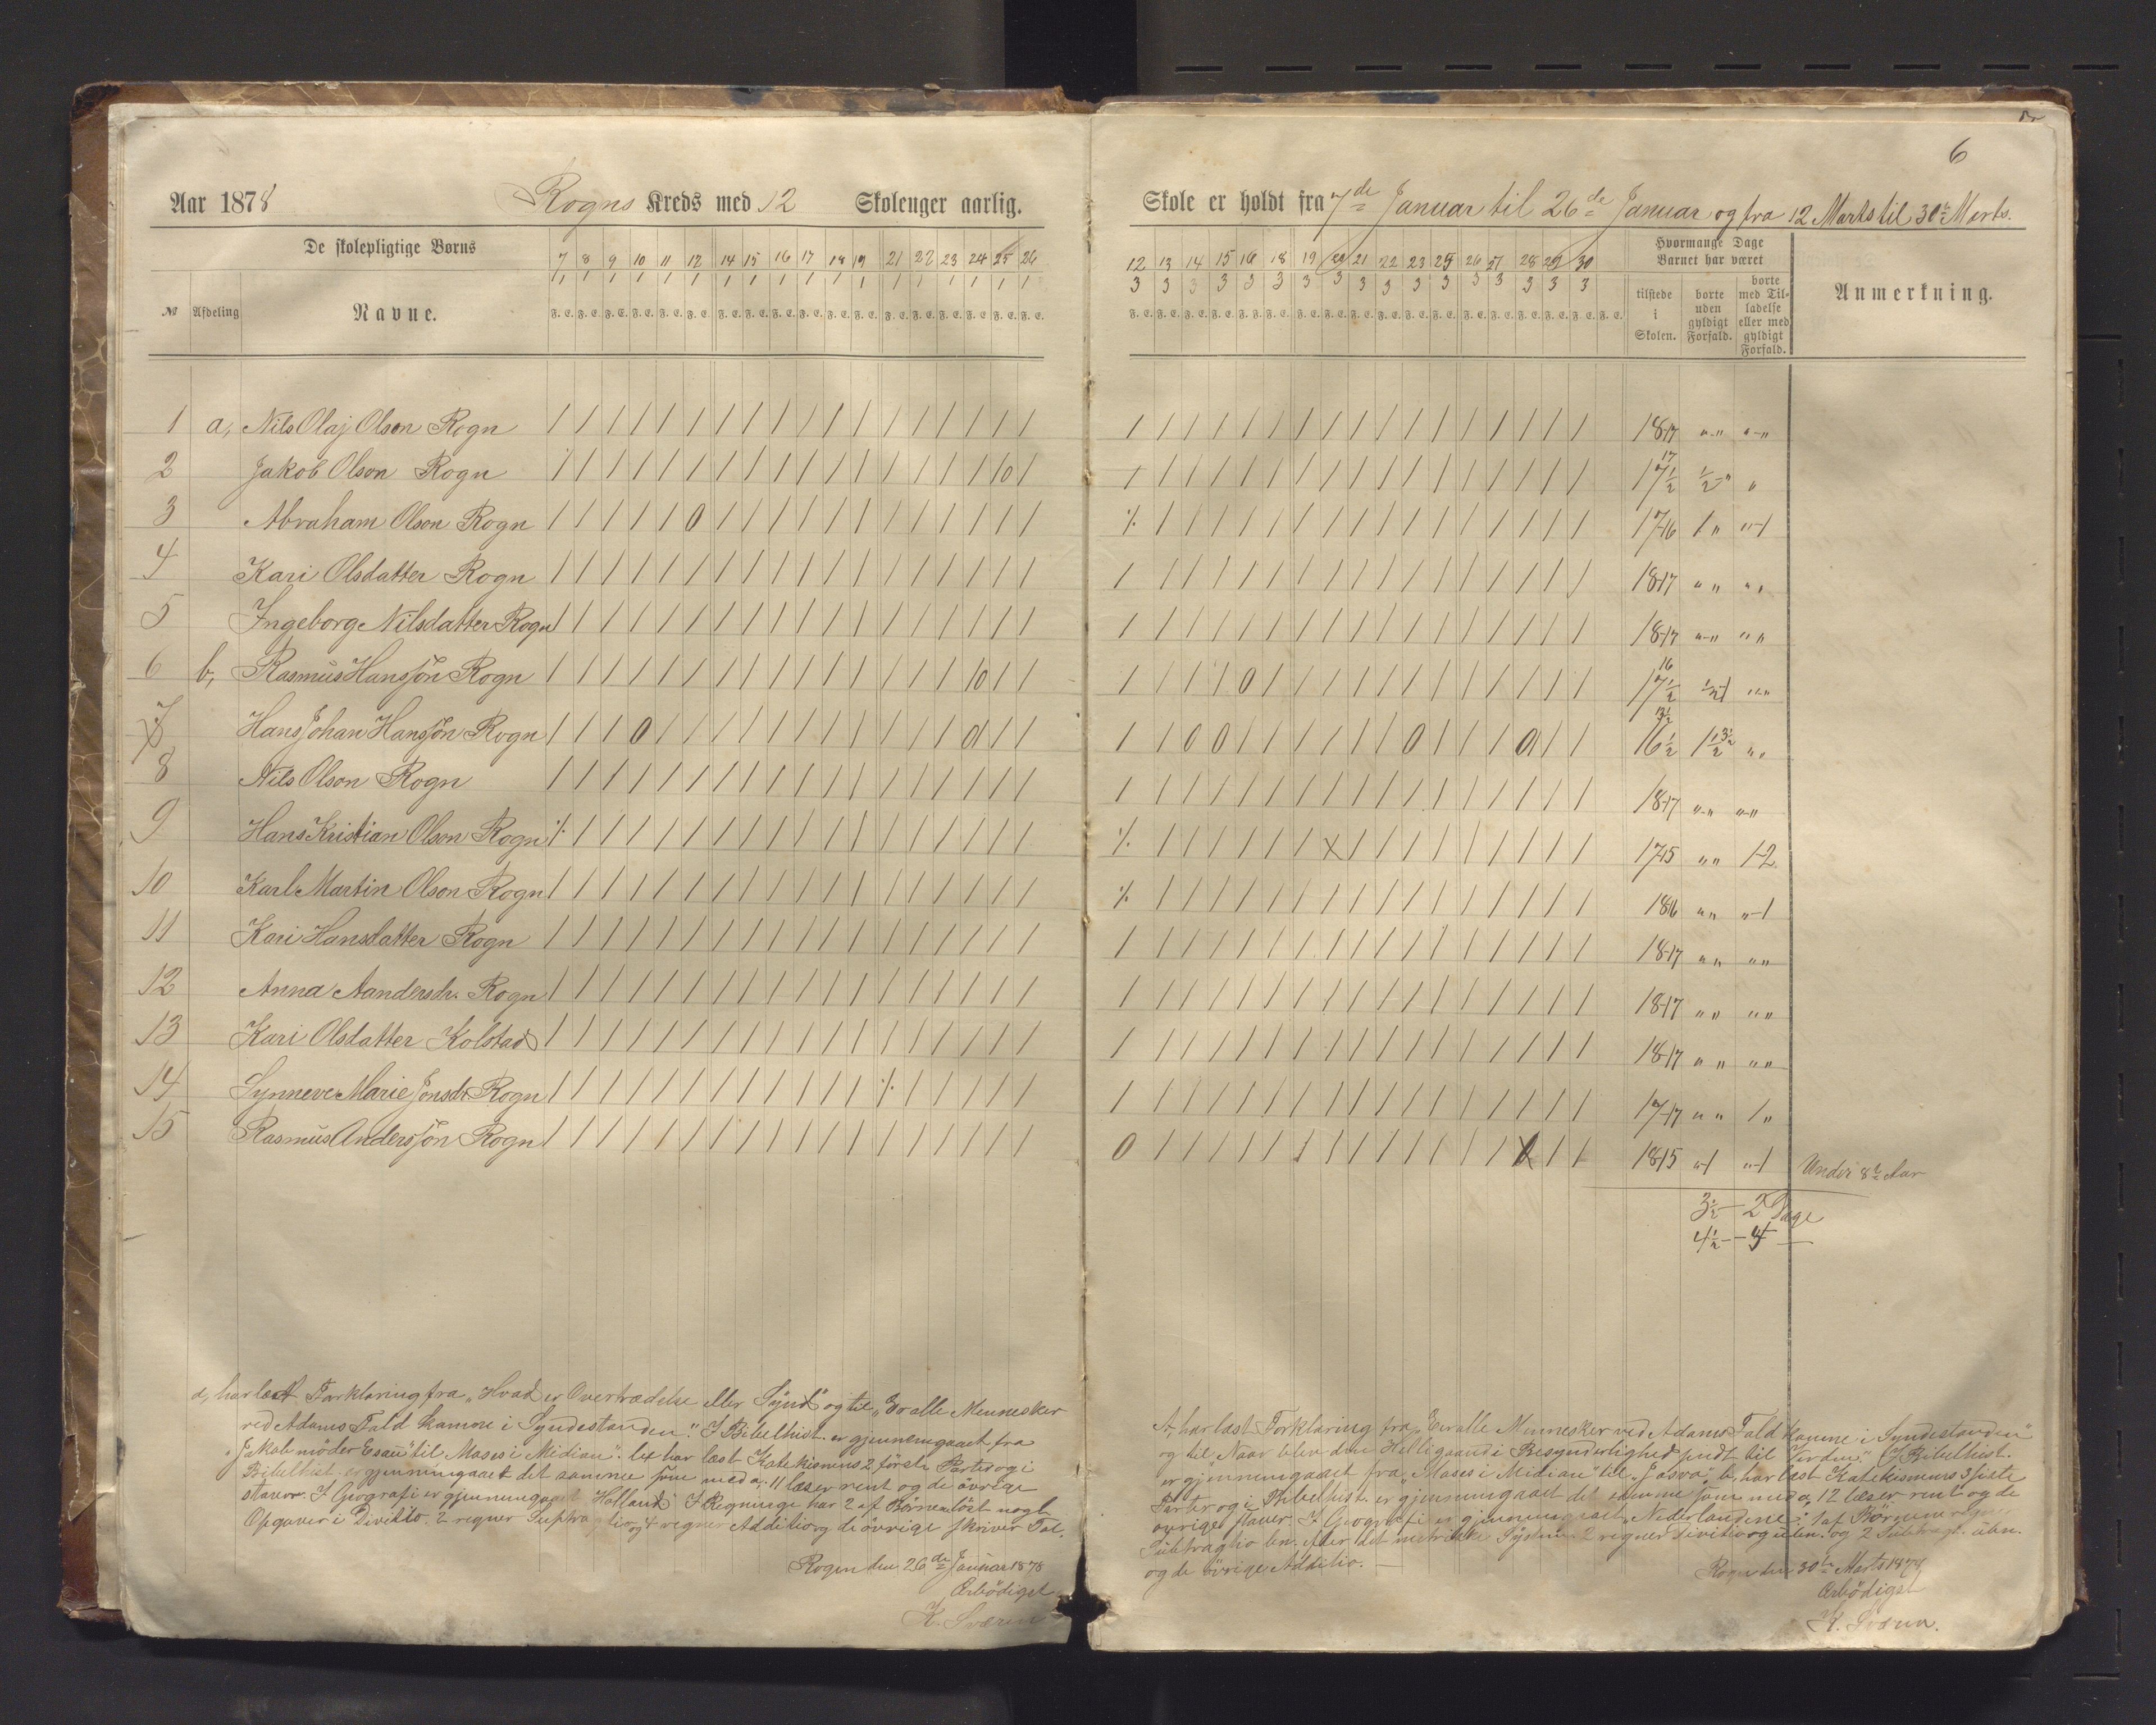 Aar 1878 Rogns Kreds med 12 Skoleuger aarlig.
De skolepligtige Børns
№ Afdeling Navne.
7 8 9 10 11 12 14 15 16 17 18 19 21 22 23 24 25 26
1 1 1 1 1 1 1 1 1 1 1 1 1 1 1 1 1 1
F. E. F. E. F. E. F. E. F. E. F. E. F. E. F. E. F. E. F. E. F. E. F. E. F. E. F. E. F. E. F. E. F. E. F. E.
1 a, Nils Olaj Olson Rogn
2 Jakob Olson Rogn
3 Abraham Olson Rogn
4 Kari Olsdatter Rogn
5 Ingeborg Nilsdatter Rogn
6 b, Rasmus Hansson Rogn
7 Hans Johan Hansson Rogn
8 Nils Olson Rogn
9 Hans Kristian Olson Rogn
10 Karl Martin Olson Rogn
11 Kari Hansdatter Rogn
12 Anna Aandersdr. Rogn
13 Kari Olsdatter Kolstad
14 Synneve Marie Jonsdr. Rogn
15 Rasmus Andersson Rogn
a, har læst Forklaring fra "Hvad er Overtrædelse eller Synd" og til "Er alle Mennesker
ved Adams Fald komne i Syndestanden". I Bibelhist. er gjennemgaaet fra
"Jakob møder Esau" til "Moses i Midian". har læst Katekismus 2 første Parter og i
Bibelhist. er gjennemgaaet det samme som med a, 11 læser rent og de øvrige
staver. I Geografi er gjennemgaaet Holland. I Regning har 2 af Børnene løst nogle
Opgaver i Divitio. 2 regner og 4 regner Additio og de øvrige skriver Tal.
Rogn den 26de Januar 1878
Ærbødigst
K. Sværen
6
Skole er holdt fra 7de Januar til 26de Januar og fra 12 Marts til 30te Marts.
12 13 14 15 16 18 19 20 21 22 23 25 26 27 28 29 30
3 3 3 3 3 3 3 3 3 3 3 3 3 3 3 3 3
Hvormange Dage
Barnet har været
tilstede i Skolen.
borte uden gyldigt Forfald.
borte med Tilladelse eller med gyldigt Forfald.
Anmerkning.
18-17
17½ 17 ½
17-16 1
18-17
18-17
17½ 16 ½-1
16½ 13½ 1½ 3½
18-17
17-15 1-2
18-16 -1
18-17
18-17
18-17
17-17 1
18-15 -1 -1 Under 8te Aar
3½ - 2 Dage
4½ -
A, har læst Forklaring fra "Er alle Mennesker ved Adams Fald komne i Syndestanden"
og til "Naar blev den Helligaand i Besynderlighed sendt til Verden". I Bibelhist.
er gjennemgaaet fra "Moses i Midian" til "Josva". b, har læst Katekismus 3 siste
Parter og i Bibelhist. er gjennemgaaet det samme som med a, 12 læser rent og de
øvrige staver. I Geografi er gjennemgaaet "Nederlandene". 1 af Børnene
Subtragtio ben. efter det metriske System 2 regner Divitio og 2 Subtragt. ubn.
og de øvrige Additio.
Rogn den 30te Marts 1878
Ærbødigst
K. Sværen.